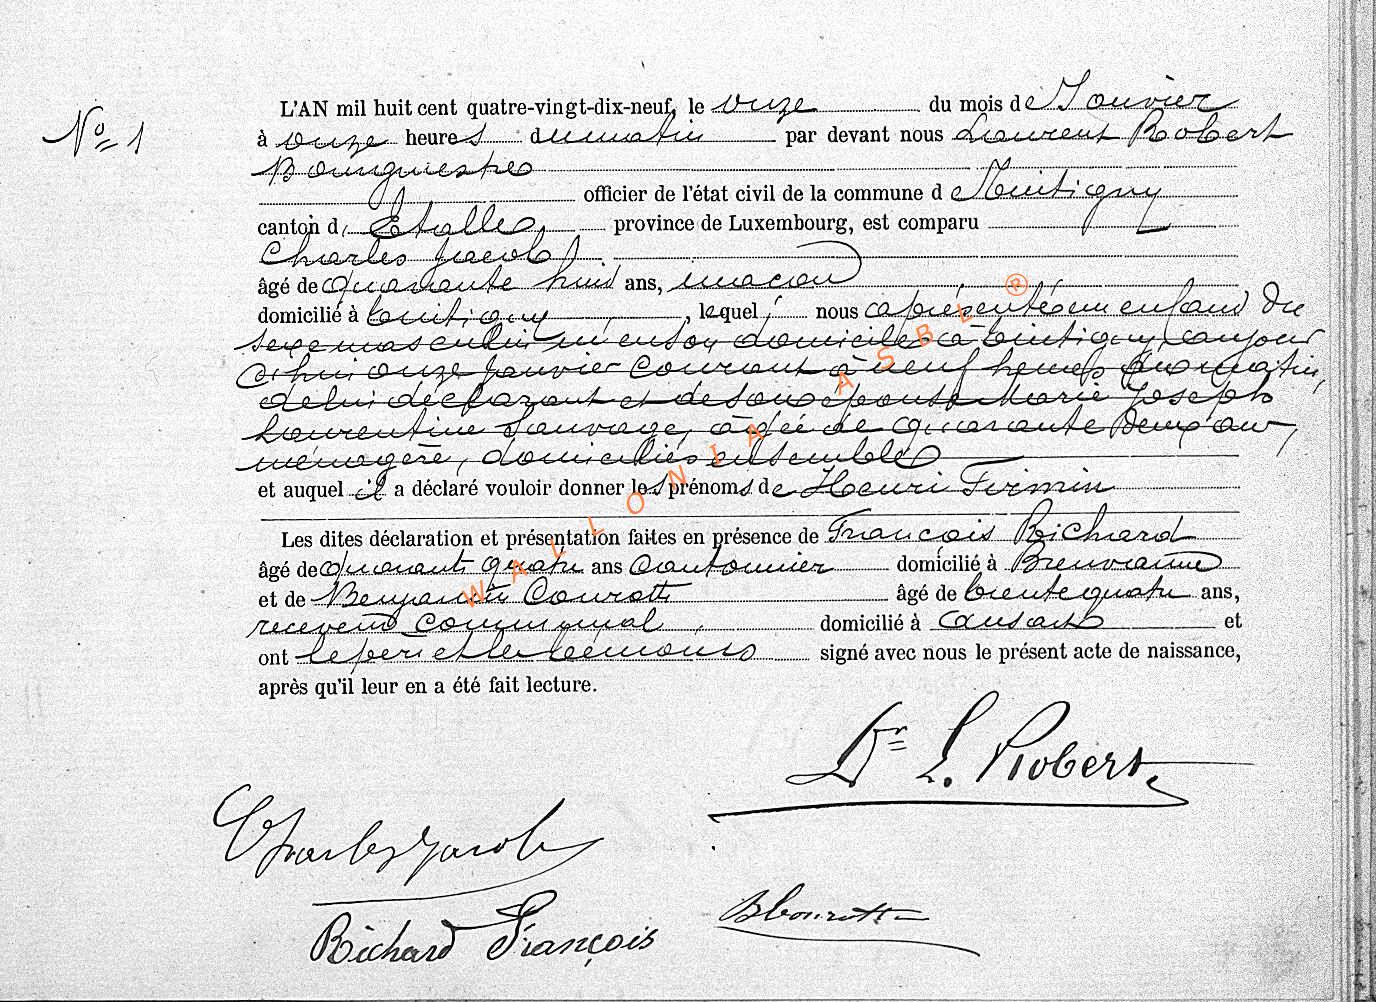 N° 1
L'AN mil huit cent quatre-vingt-dix-neuf, le onze du mois de Janvier
à onze heures du matin par devant nous Laurent Robert
Bourgmestre
officier de l'état civil de la commune de Tintigny
canton d'Etalle, province de Luxembourg, est comparu
Charles Jacob
âgé de quarante huit ans, maçon
domicilié à tintigny, lequel nous a présenté un enfant du
sexe masculin né en son domicile à tintigny, aujour
d'hui onze Janvier courant à neuf heures du matin,
de lui déclarant et de son épouse Marie Joseph
Laurentine Sauvage, âgée de quarante deux ans,
ménagère, domiciliés ensemble
et auquel il a déclaré vouloir donner les prénoms de Henri Firmin
Les dites déclaration et présentation faites en présence de François Richard
âgé de quarante quatre ans cantonnier domicilié à Breuvanne
et de Benjamin Courotte âgé de trente quatre ans,
receveur communal, domicilié à Ansart et
ont le père et les témoins signé avec nous le présent acte de naissance,
après qu'il leur en a été fait lecture.
Dr L. Robert
Charles Jacob
Richard François
B Courotte
WALLONIA ASBL ®